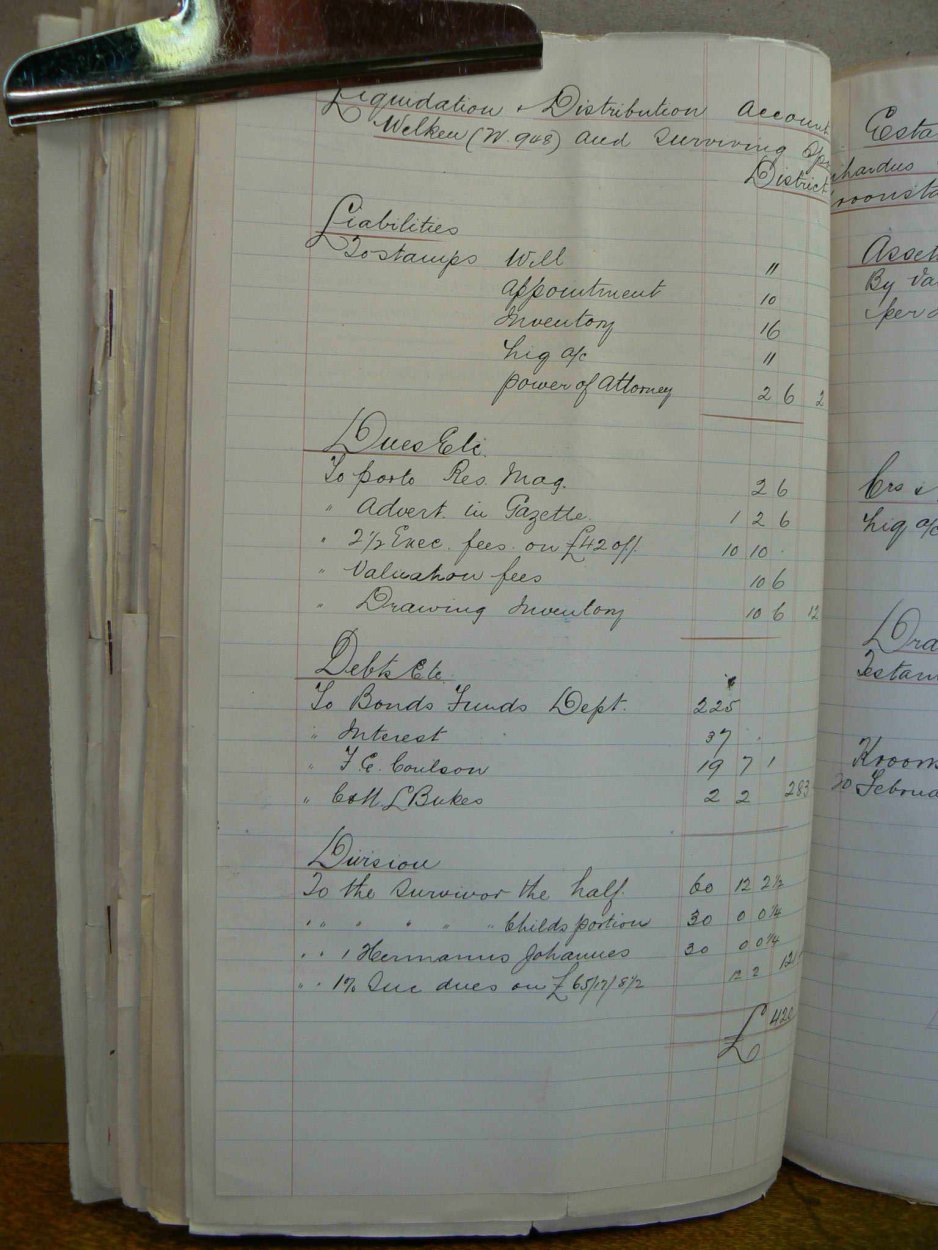 Liquidation & Distribution Account
Welken (W. 948) and Surviving Spo
District
Liabilities
To stamps Will "
appointment 10
Inventory 16
Liq a/c "
power of Attorney 2 6 2
Dues Etc.
To posts Res. Mag. 2 6
" Advert. in Gazette. 1 2 6
" 2½ Exec. fees. on £420ff. 10 10
" Valuation fees 10 6
" Drawing Inventory 10 6 12
Debts Etc.
To Bonds Funds Dept. 225
" Interest 37
" T. E. Coulson 19 7 1
" L Bukes 2 2 283
Division
To the Survivor the half. 60 12 2½
" " " " " Childs portion 30 0 0¼
" " " Hermanus Johannes 30 0 0¼
" " 1% Suc dues on £65/17/8½ 12 2 121
£ 420
Esta
chardus
roonsta
Asset
By Va
per
Crs &
Liq a/c
Dra
Testam
Kroons
20 Februa